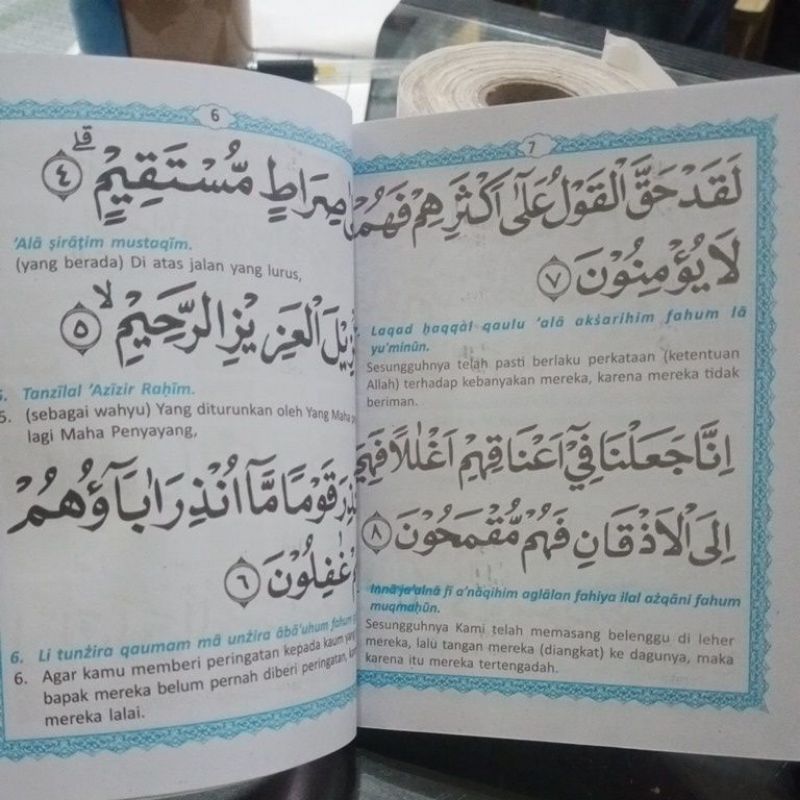 6
صِرَاطٍ مُّسْتَقِيْمٍۗ ٤
'Alā ṣirāṭim mustaqīm.
(yang berada) Di atas jalan yang lurus,
الْعَزِيْزِ الرَّحِيْمِۙ ٥
5. Tanzīlal 'Azīzir Raḥīm.
5. (sebagai wahyu) Yang diturunkan oleh Yang Maha
lagi Maha Penyayang,
قَوْمًا مَّآ اُنْذِرَ اٰبَاۤؤُهُمْ
غٰفِلُوْنَ ٦
6. Li tunżira qaumam mā unżira ābā'uhum fahum
6. Agar kamu memberi peringatan kepada kaum yang
bapak mereka belum pernah diberi peringatan,
mereka lalai.
7
لَقَدْ حَقَّ الْقَوْلُ عَلٰٓى اَكْثَرِهِمْ فَهُمْ
لَا يُؤْمِنُوْنَ ٧
Laqad ḥaqqàl qaulu 'alā akṡarihim fahum lā
yu'minūn.
Sesungguhnya telah pasti berlaku perkataan (ketentuan
Allah) terhadap kebanyakan mereka, karena mereka tidak
beriman.
اِنَّا جَعَلْنَا فِيْٓ اَعْنَاقِهِمْ اَغْلٰلًا فَهِيَ
اِلَى الْاَذْقَانِ فَهُمْ مُّقْمَحُوْنَ ٨
Innā ja'alnā fī a'nāqihim aglālan fahiya ilal ażqāni fahum
muqmaḥūn.
Sesungguhnya Kami telah memasang belenggu di leher
mereka, lalu tangan mereka (diangkat) ke dagunya, maka
karena itu mereka tertengadah.